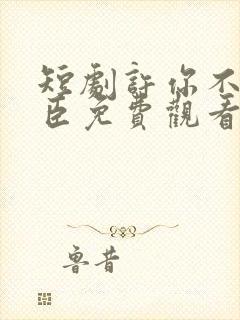 短劇許你不
臣免費觀看
魯昔